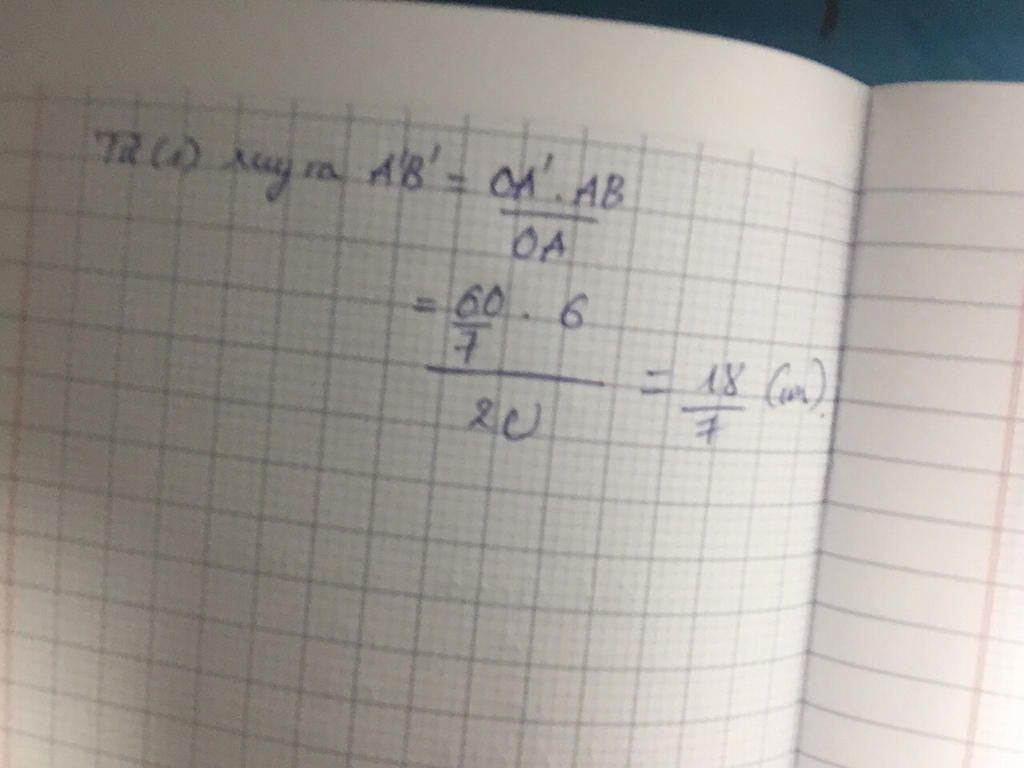 Từ (1) suy ra A'B' = OA' . AB / OA
= 60/7 . 6 / 20 = 18/7 (cm).